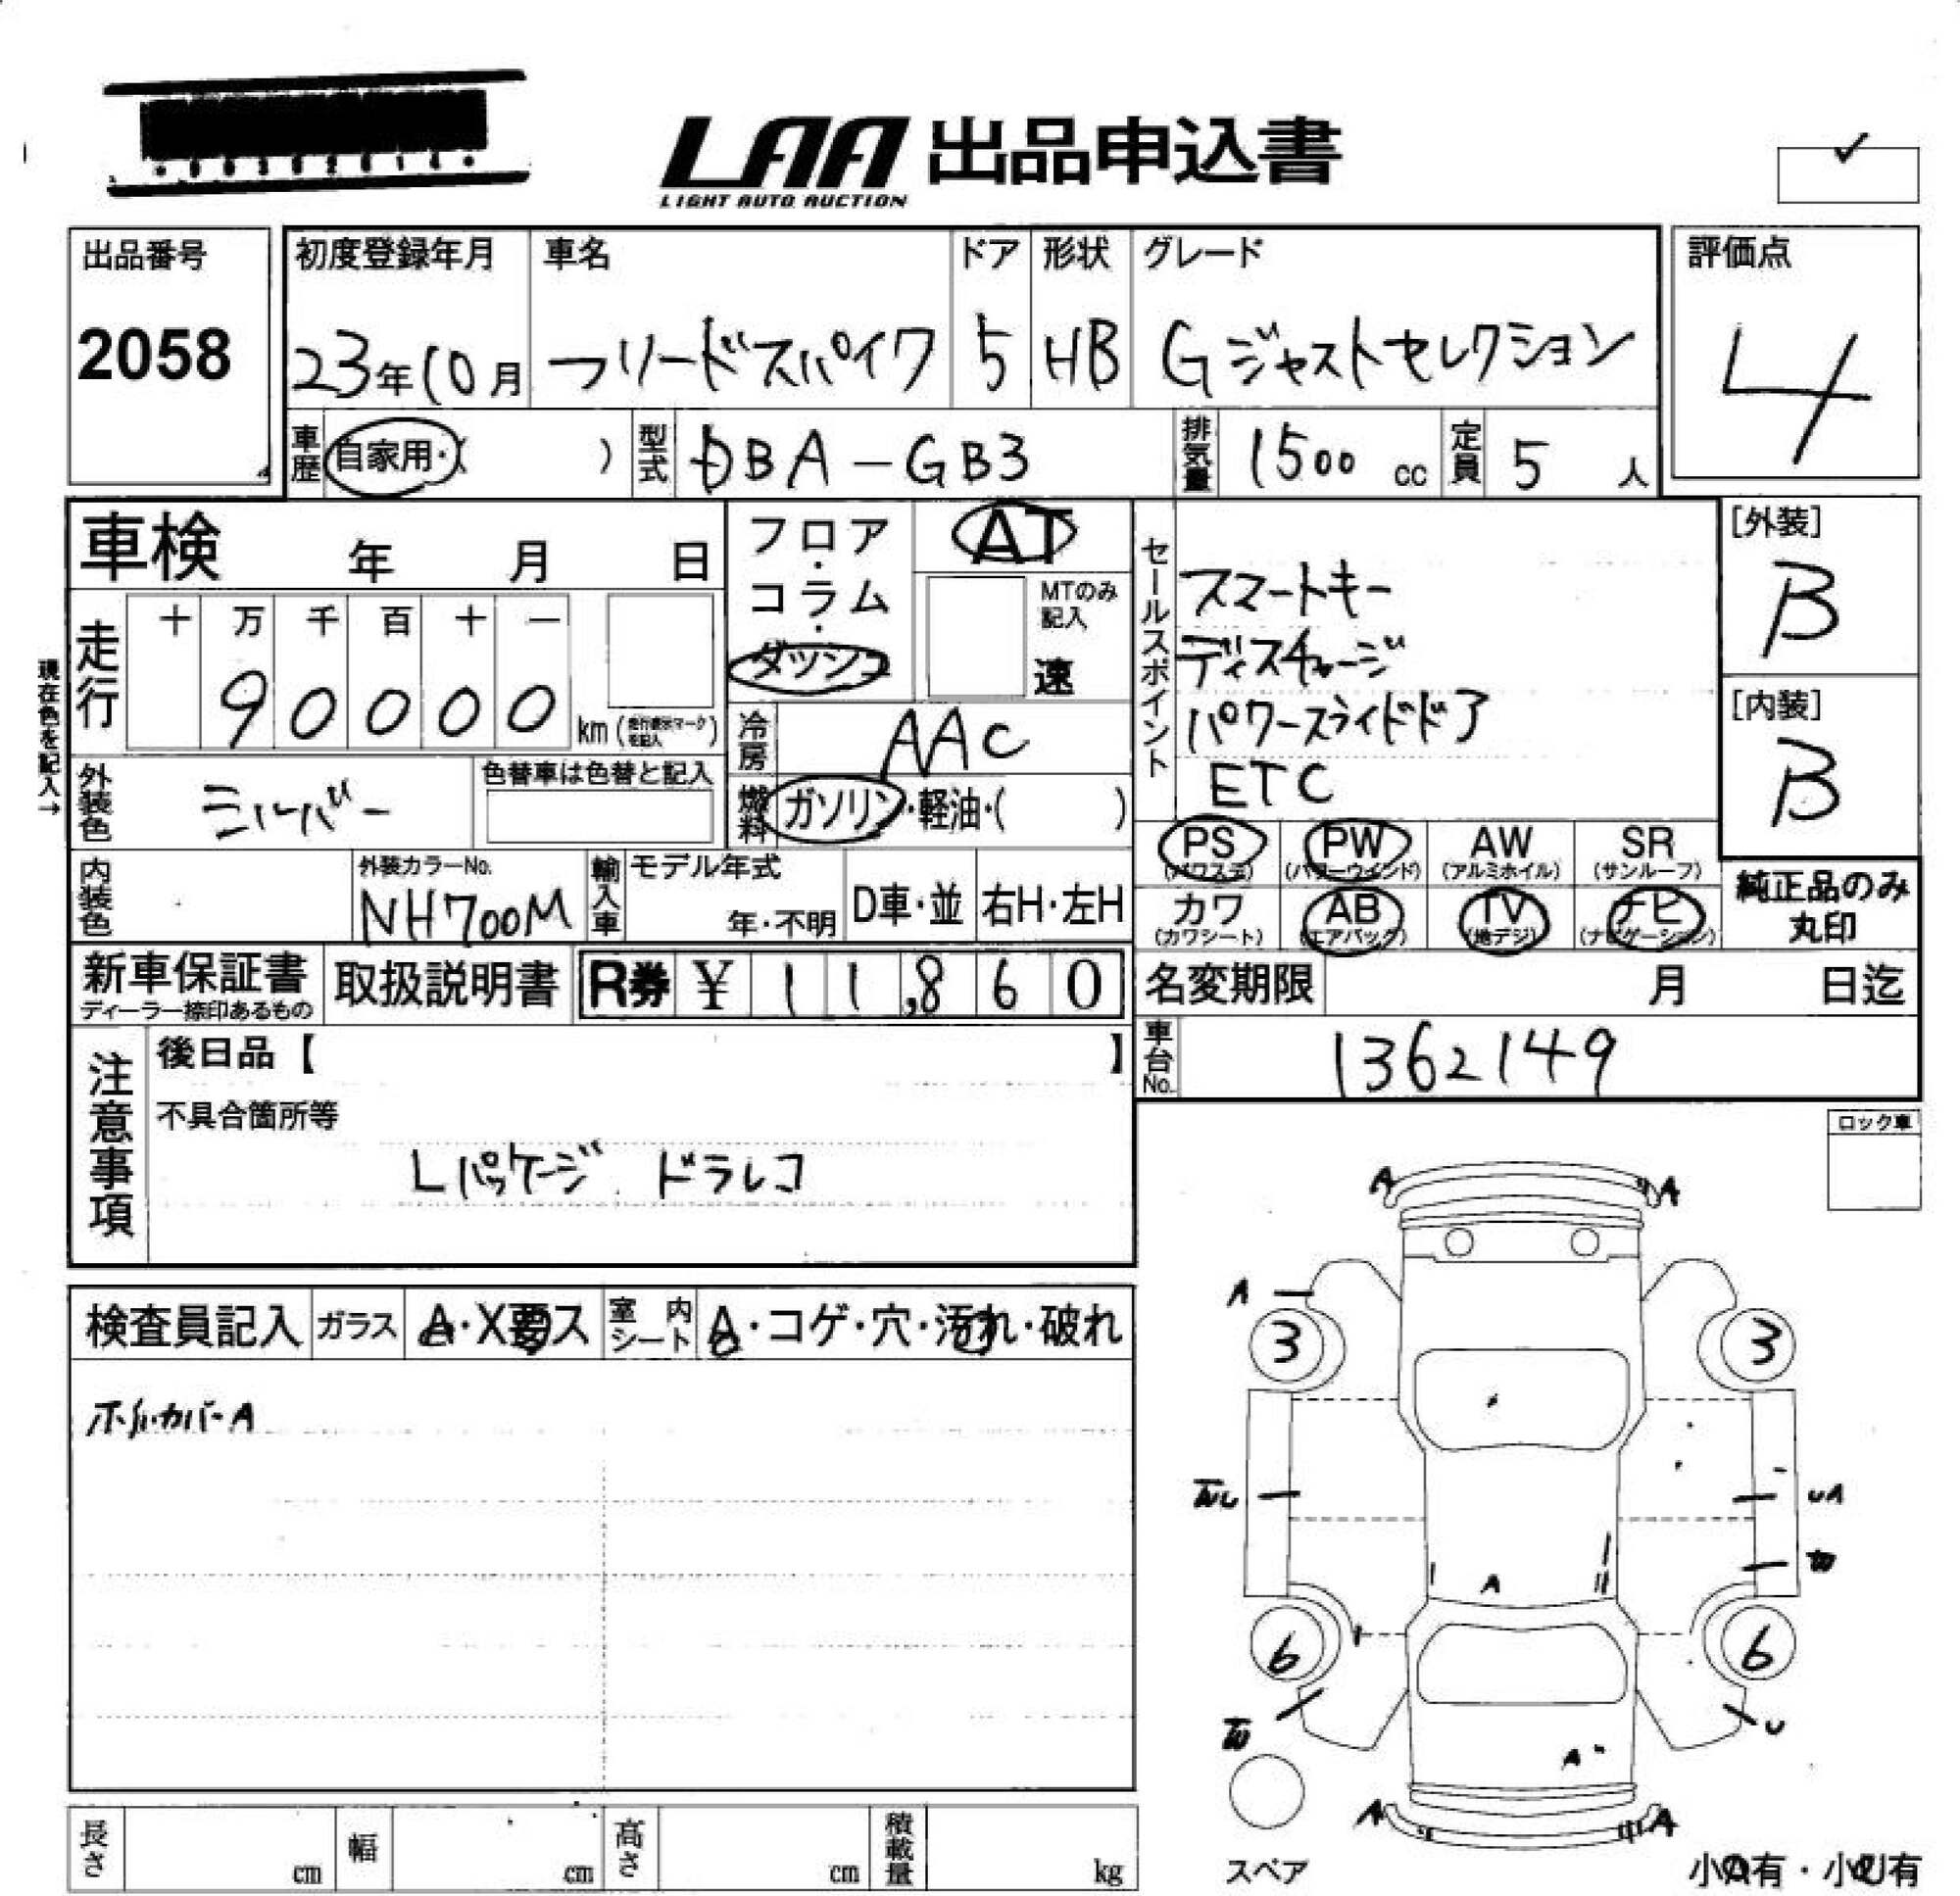 LAA 出品申込書
LIGHT AUTO AUCTION
出品番号
2058
初度登録年月 車名 ドア 形状 グレード
23年10月 フリードスパイク 5 HB Gジャストセレクション
評価点
4
車歴 自家用・( ) 型式 DBA-GB3 排気量 1500 cc 定員 5 人
車検 年 月 日
フロア・コラム・ダッシュ
AT
MTのみ記入
速
走行 十 万 千 百 十 一
90000 km
現在色を記入→
冷房 AAC
外装色 シルバー 色替車は色替と記入
燃料 ガソリン・軽油・( )
セールスポイント
スマートキー
ディスチャージ
パワースライドドア
ETC
[外装]
B
[内装]
B
PS PW AW SR
(パワステ) (パワーウインド) (アルミホイル) (サンルーフ)
カワ AB TV ナビ
(カワシート) (エアバッグ) (地デジ) (ナビゲーション)
純正品のみ
丸印
内装色 外装カラーNo. NH700M 輸入車 モデル年式 年・不明 D車・並 右H・左H
新車保証書 取扱説明書 R券 ¥ 11,860
ディーラー捺印あるもの
名変期限 月 日迄
車台No. 1362149
注意事項
後日品【 】
不具合箇所等
Lパッケージ ドラレコ
ロック車
検査員記入 ガラス A・X要ス 室内シート A・コゲ・穴・汚れ・破れ
ホイルカバーA
A A
A
3 3
UA
W
A
6 6
W U
A
A A
スペア
小A有・小U有
長さ cm 幅 cm 高さ cm 積載量 kg